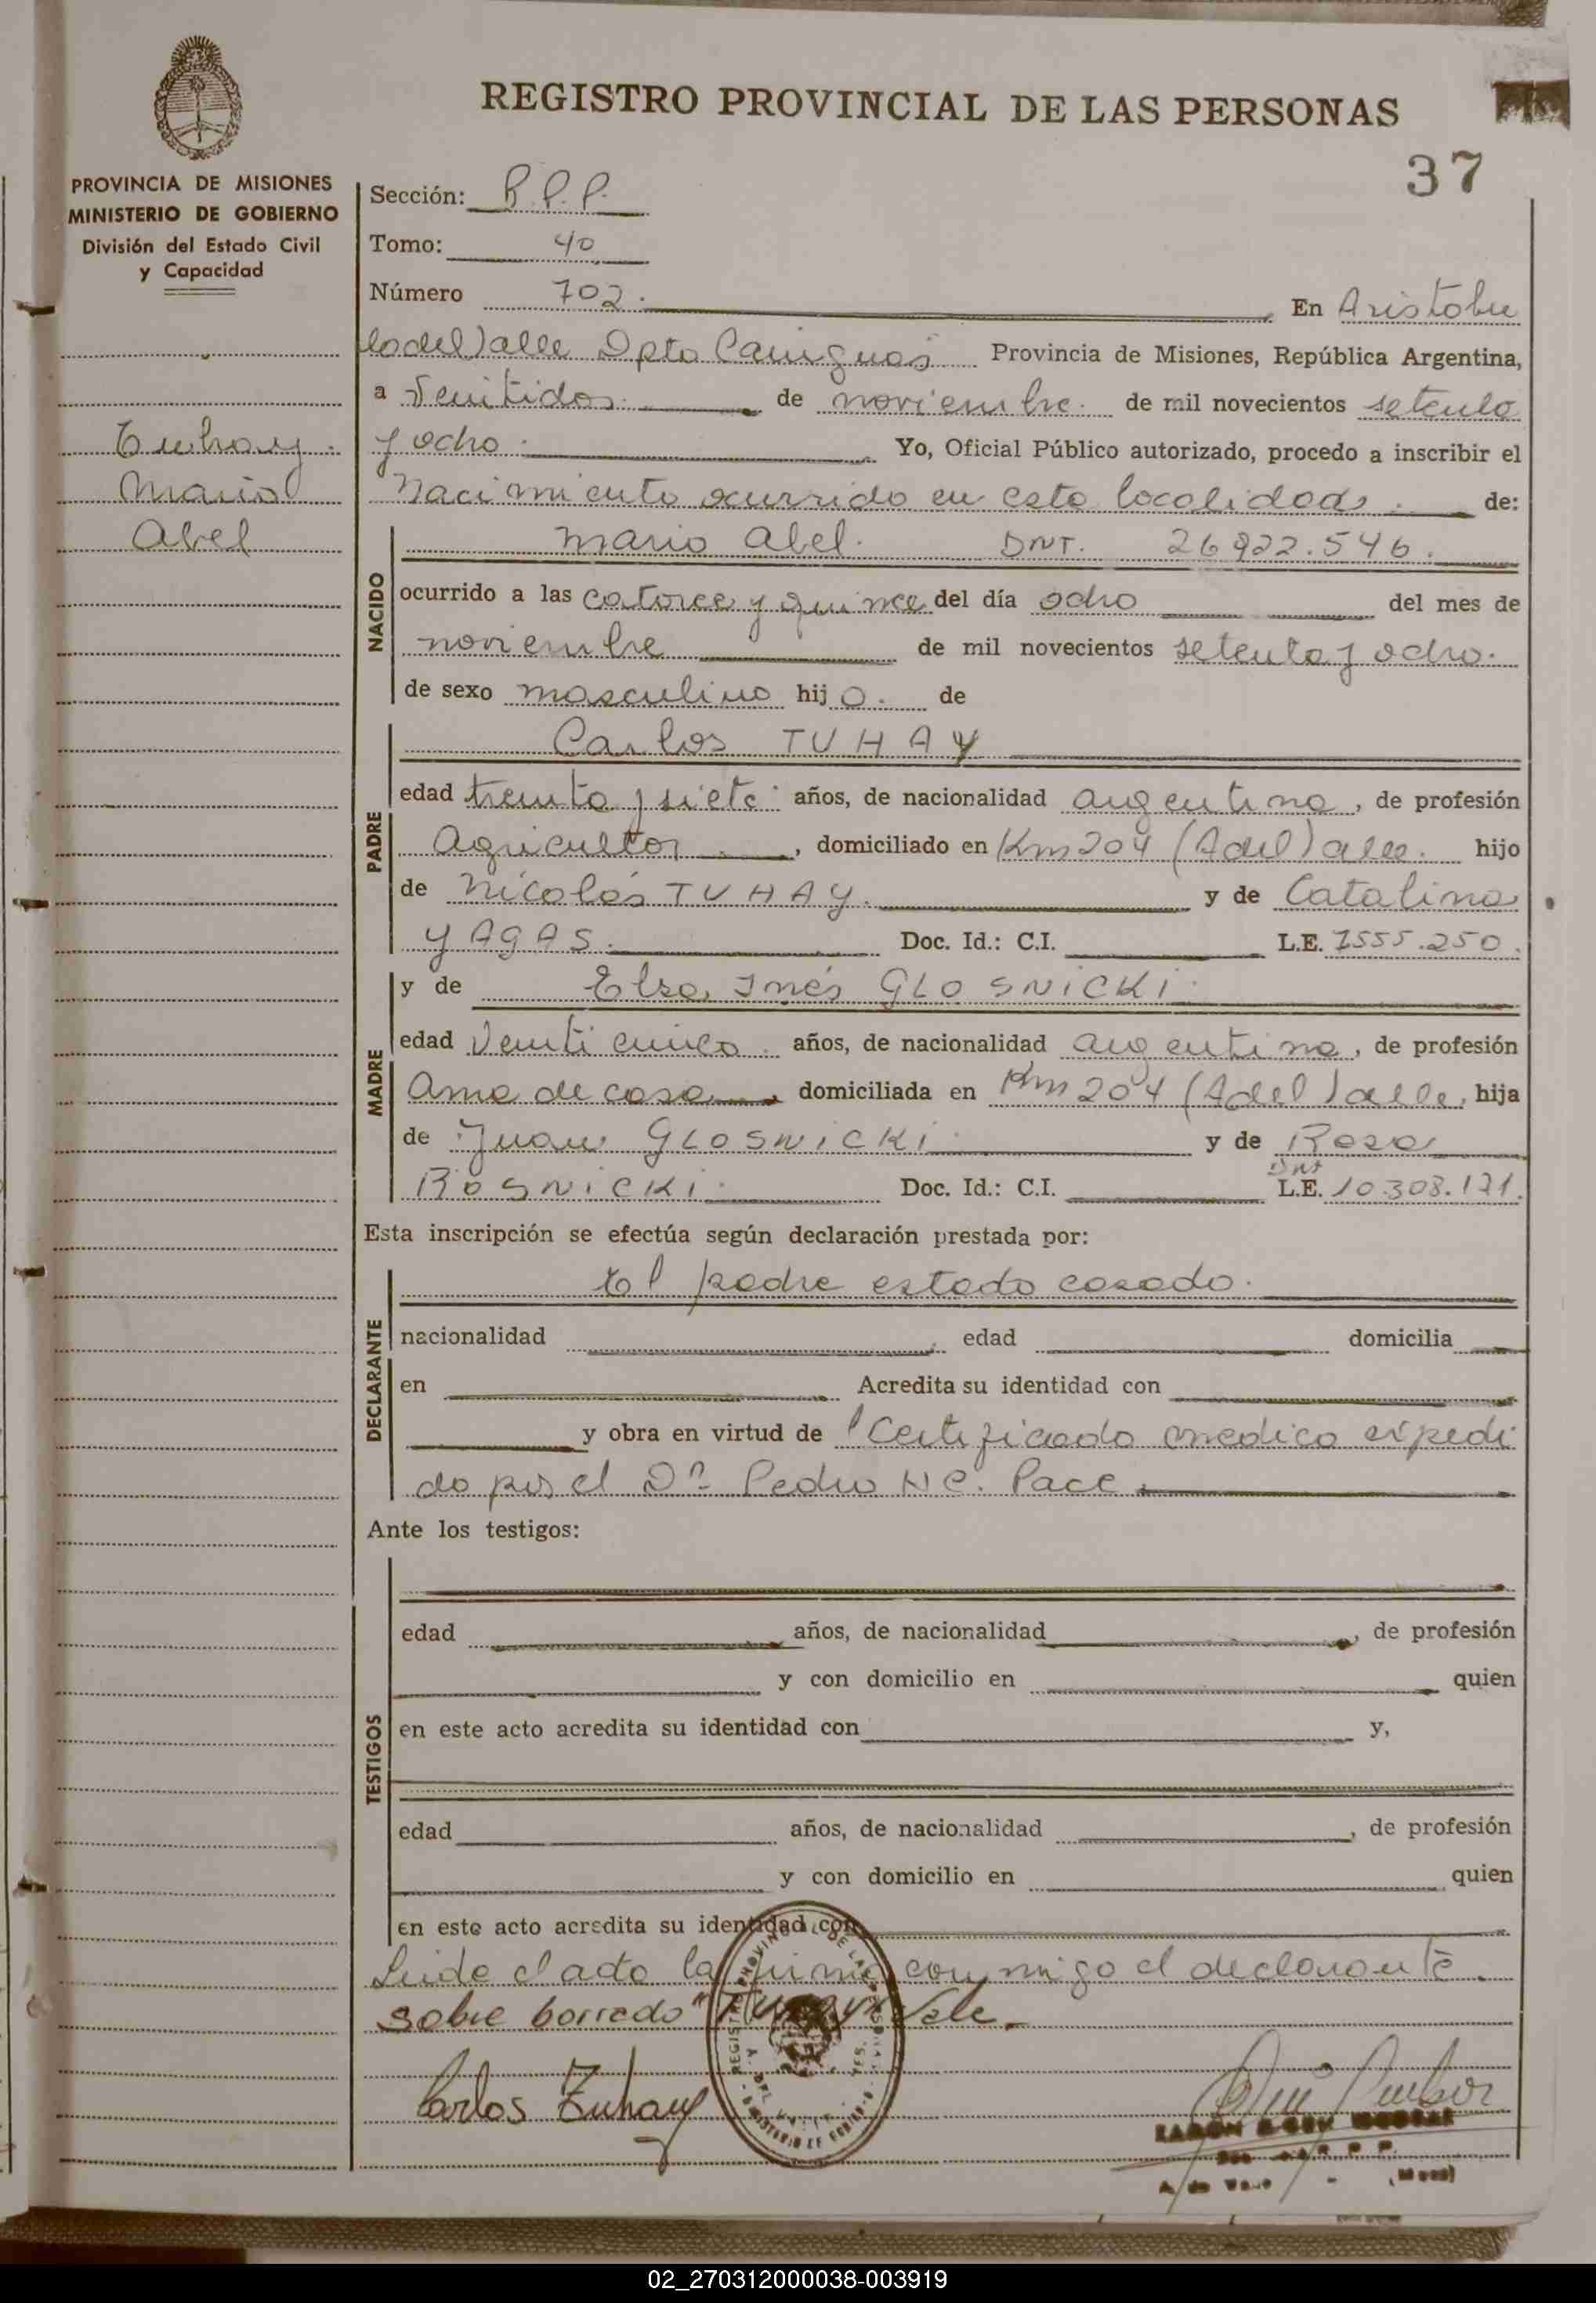 REGISTRO PROVINCIAL DE LAS PERSONAS
37
PROVINCIA DE MISIONES
MINISTERIO DE GOBIERNO
División del Estado Civil
y Capacidad
Tuhay
Mario
Abel
Sección: R.P.P.
Tomo: 40
Número 702. En Aristóbu
lo del Valle Dpto Cainguás Provincia de Misiones, República Argentina,
a Veintidos de noviembre de mil novecientos setenta
y ocho. Yo, Oficial Público autorizado, procedo a inscribir el
Nacimiento ocurrido en esta localidad. de:
NACIDO
Mario Abel. DNI. 26922.546.
ocurrido a las catorce y quince del día ocho del mes de
noviembre de mil novecientos setenta y ocho.
de sexo masculino hijo. de
PADRE
Carlos TUHAY
edad treinta y siete años, de nacionalidad argentina, de profesión
Agricultor, domiciliado en Km 204 (A del Valle. hijo
de Nicolás TUHAY. y de Catalina
YAGAS. Doc. Id.: C.I. L.E. 7555.250.
MADRE
y de Elsa Inés GLOSNICKI.
edad Veinticinco. años, de nacionalidad argentina, de profesión
Ama de casa domiciliada en Km 204 (A del Valle, hija
de Juan GLOSNICKI. y de Rosa
ROSNICKI. Doc. Id.: C.I. DNI L.E. 10.308.171.
Esta inscripción se efectúa según declaración prestada por:
DECLARANTE
El padre estado casado.
nacionalidad , edad domicilia
en Acredita su identidad con
y obra en virtud de Certificado medico expedi
do por el Dr. Pedro Pace
Ante los testigos:
TESTIGOS
edad años, de nacionalidad , de profesión
y con domicilio en quien
en este acto acredita su identidad con y,
edad años, de nacionalidad , de profesión
y con domicilio en quien
en este acto acredita su identidad con
Leida el acta la firma conmigo el declarante.
sobre borrado "Tuhay" Vale.
Carlos Tuhay
02_270312000038-003919